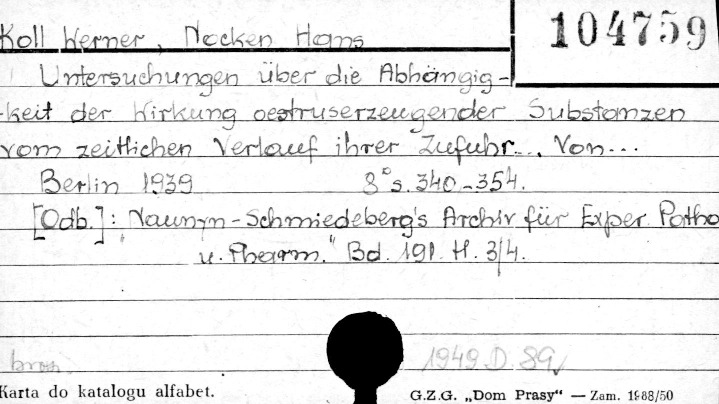 Koll Werner, Nocken Hans
104759
Untersuchungen über die Abhängig-
keit der Wirkung oestruserzeugender Substanzen
vom zeitlichen Verlauf ihrer Zufuhr... Von...
Berlin 1939 8° s. 340-354.
[Odb.]: "Naunyn-Schmiedeberg's Archiv für Exper. Patho
u. Pharm." Bd. 191. H. 3/4.
brosz. 1949 D 89
Karta do katalogu alfabet. G.Z.G. „Dom Prasy“ — Zam. 1988/50